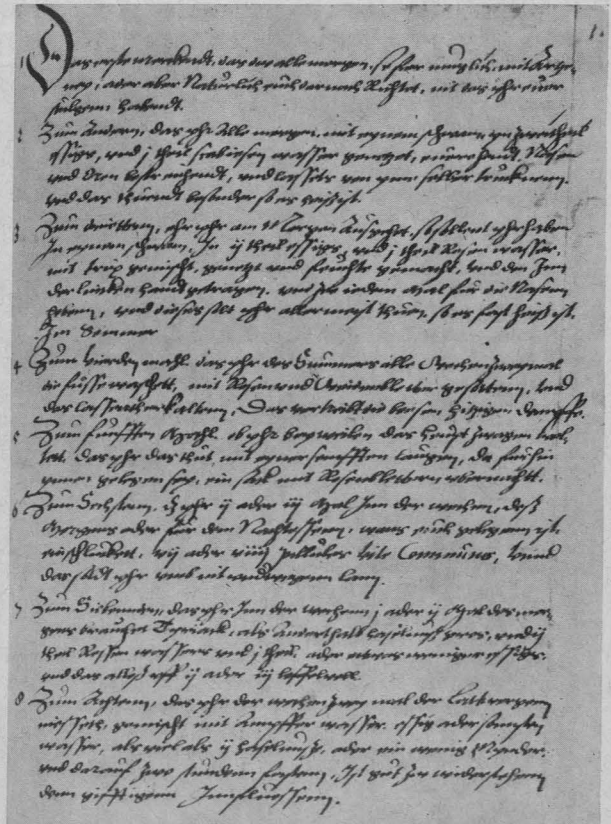 1.
1 Das erste merckendt, das Ir alle morgen, so fer muglich, mit
oder aber Naturlich euch darnach Richtet, mit
stulgeni habendt.
2 Zum Andern, das yhr Alle morgen, mit eynem schwam, yn
essigs, vnd j theil wasser genetzet, euwere hendt, Nasen
vnd Oren bestreichendt, vnd lassets von yme selber trucknenn.
vnd das thuendt besonder so es heiß ist.
3 Zum dritten, ehe yhr am Morgen Ausgehet, so sollent yhr haben
Jn eynem schwam, Jn ij theil essigs, vnd j theil Rosen wasser,
mit gemischt, genetzt vnd feuchte gemacht, vnd den Jnn
der lincken handt getragen, vnd zu ieden mal fur die Nasenn
heben, vnd dieses solt yhr allermeist thuen, so es fast heiß ist.
Jm Sommer
4 Zum Vierden mahl, das yhr des Summers alle Wochen zwey mal
die füsse waschett, mit Rosen vnd Weidenbletter gesottenn, vnd
das lassen erkaltenn, Das vertreibt die boesen hitzigen dempffe.
5 Zum funfften Mahl, ob yhr beyweilen das heupt zwagen
tet, das yhr das thut, mit eyner sanfften laugen, da
ynnen gelegen sey, ein sack mit Rosenblettern vermacht.
6 Zum Sechsten, das yhr ij oder iij Mal Jnn der wochen, deß
Morgens oder fur dem Nachtessenn, wans euch gelegenn ist,
einschluckett, vij oder viiij Pillulas Communes, vnnd
das solt yhr vmb nit vnderwegenn lann.
7 Zum Sibenden, das yhr Jnn der wochenn j oder ij Mal des mor-
gens brauchet Tyriack, als Anderthalb haselnuß gros, vnd ij
theil Rossen wassers vnd j theil, oder etwas weniger essigs,
vnd das alles vff ij oder iij leffel voll.
8 Zum Achten, das yhr der wochen zwey mal der Lattwergenn
niesseth, gemischt mit Ampffer wasser, essig oder
wasser, als viel als ij haselnuß, oder ein wenig Mynder,
vnd darauf zwo stunden fasten, Jst gut zu widerstehenn
denn gifftigenn Jnnfluessenn.